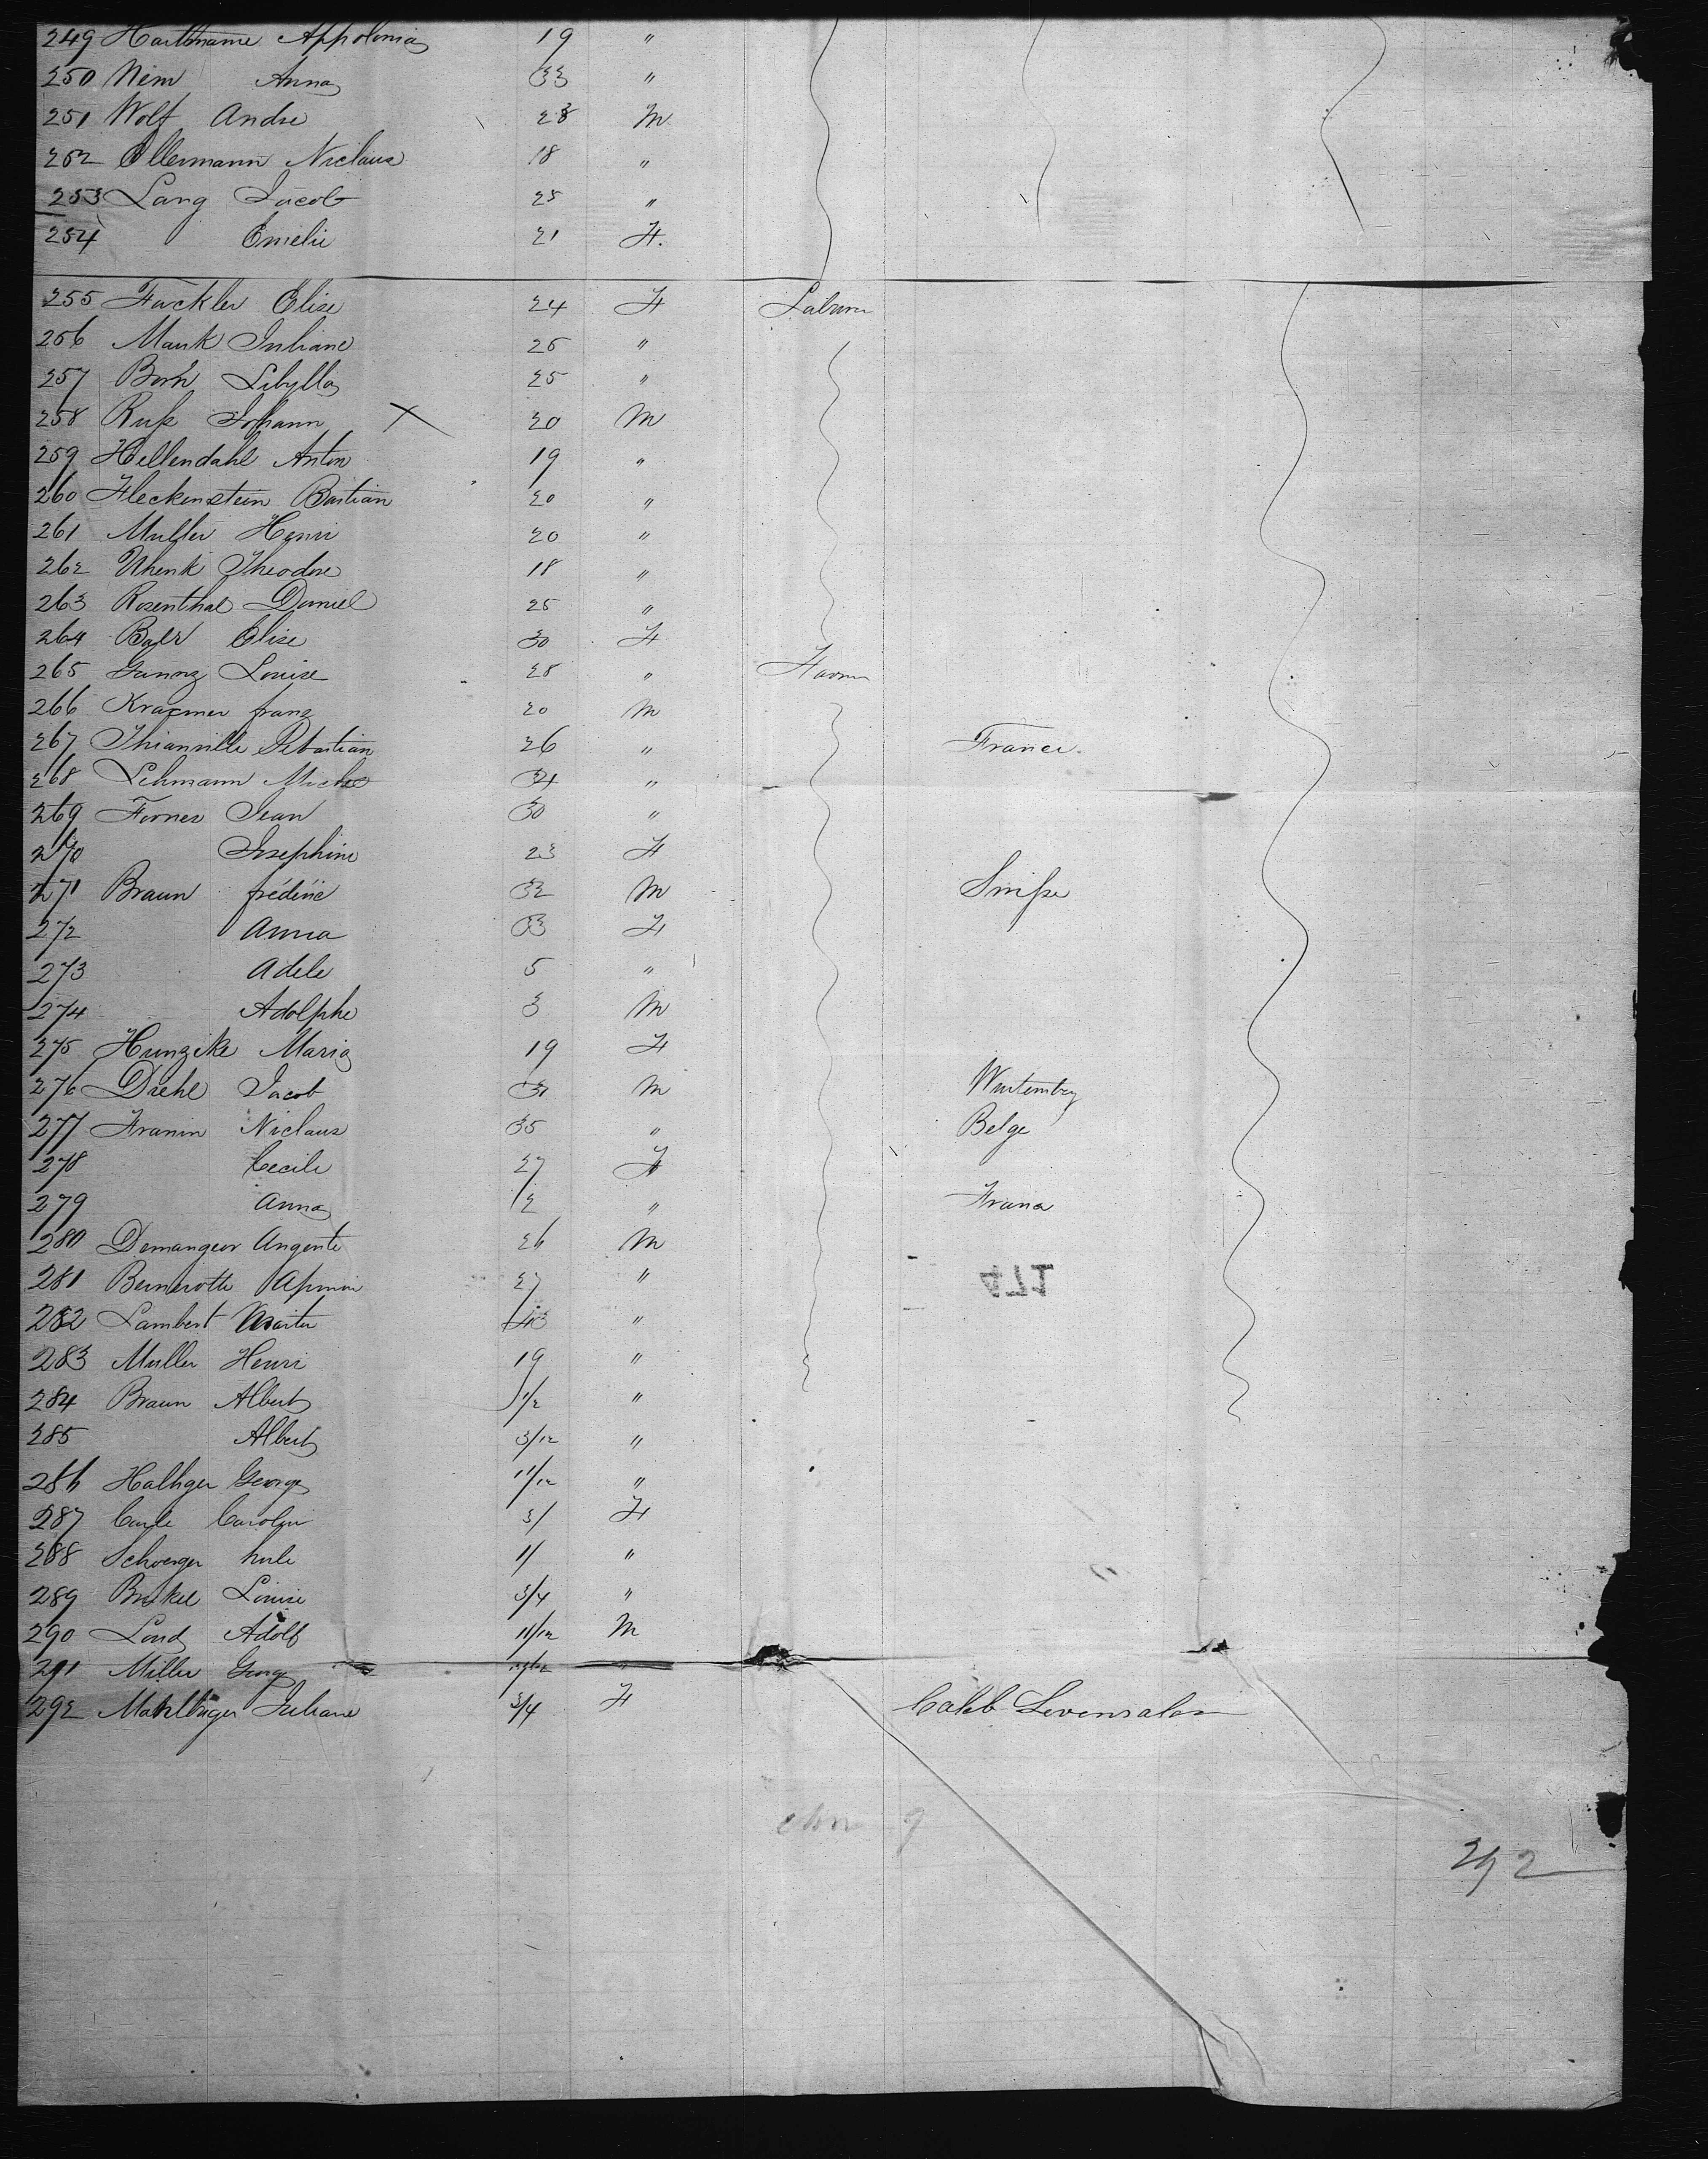 249 Hartmann Appolonia 19 "
250 Nem Anna 33 "
251 Wolf Andre 28 M
252 Ollermann Niclaus 18 "
253 Lang Jacob 25 "
254 Emelie 21 F.
255 Fackler Elise 24 F Labourer
256 Mauk Juliane 25 "
257 Borh Sibylla 25 "
258 Ruß Johann X 20 M
259 Hellendahl Anton 19 "
260 Fleckenstein Bastian 20 "
261 Muller Henri 20 "
262 Uhenk Theodore 18 "
263 Rosenthal Daniel 25 "
264 Baer Elise 30 F
265 Louise 28 "
266 Kraemer franz 20 M
267 Thianville Sebastian 26 " France
268 Lehmann Michel 34 "
269 Forner Jean 30 "
270 Josephine 23 F
271 Braun fréderic 32 M Suisse
272 Anna 33 F
273 Adele 5 "
274 Adolphe 3 M
275 Hunzike Maria 19 F
276 Diehl Jacob 31 M Wurtemberg
277 Franin Niclaus 35 " Belge
278 Cecile 27 F
279 Anna 2 " France
280 Demangeor 26 M
281 27 "
471
282 Lambert "
283 Muller Henri 19 "
284 Braun Albert 1/2 "
285 Albert 3/12 "
286 George 11/12 "
287 3/ F
288 1/ "
289 Louise 3/4 "
290 Adolf 11/12 M
291 Miller George "
292 Juliane 3/4 F Caleb Levensaler
292